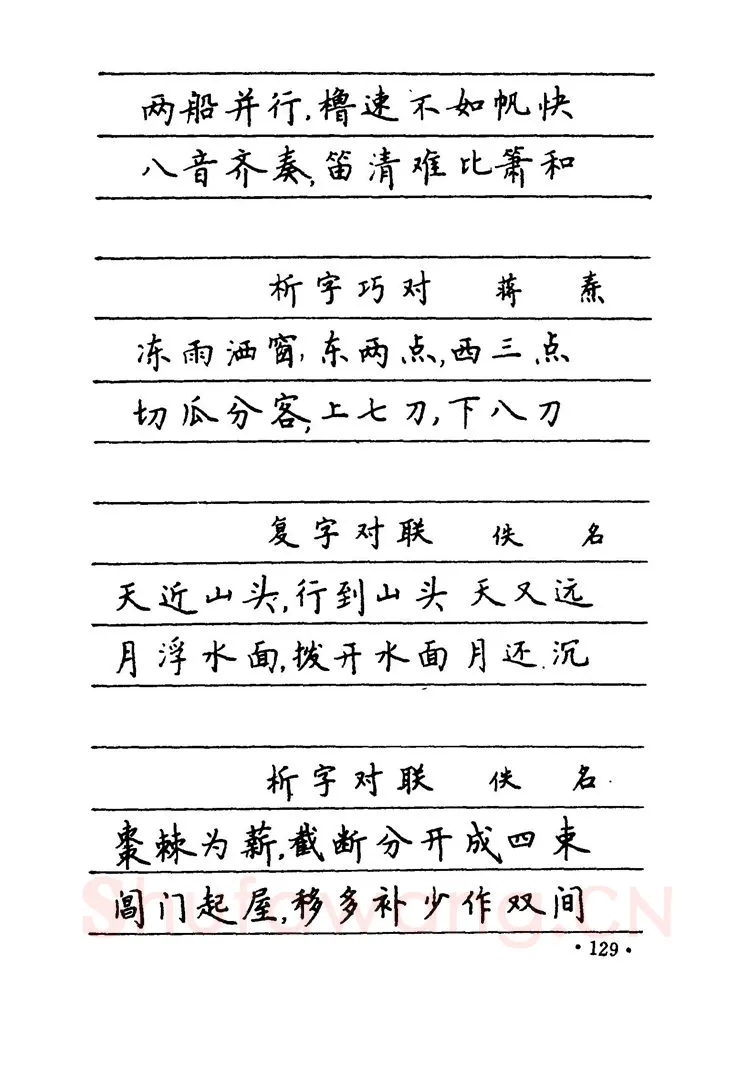 两船并行,橹速不如帆快
八音齐奏,笛清难比箫和
析字巧对 蒋焘
冻雨洒窗,东两点,西三点
切瓜分客,上七刀,下八刀
复字对联 佚名
天近山头,行到山头天又远
月浮水面,拨开水面月还沉
析字对联 佚名
枣棘为薪,截断分开成四束
阊门起屋,移多补少作双间
Shufawang.CN
·129·